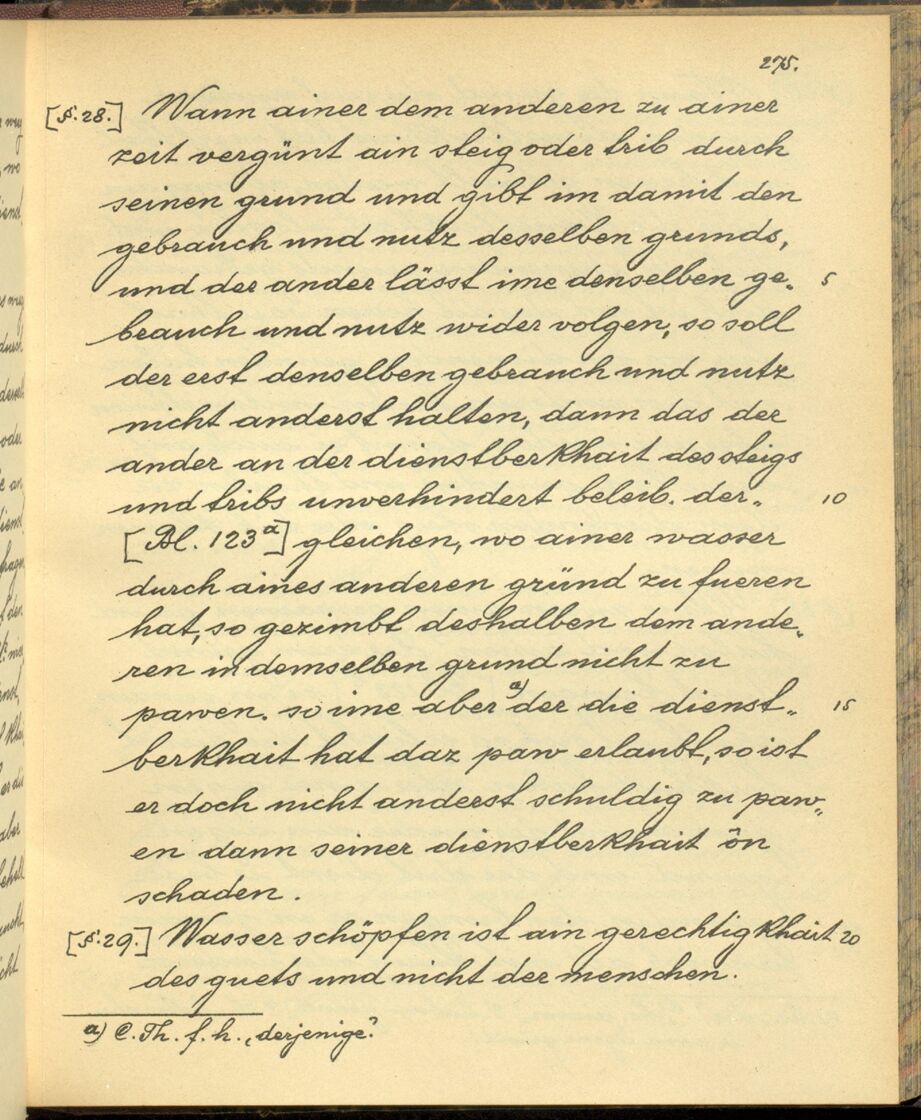 275.
[§.28.] Wann ainer dem anderen zu ainer
zeit vergünt ain steig oder trib durch
seinen grund und gibt im damit den
gebrauch und nutz desselben grunds,
und der ander lässt ime denselben ge- 5
brauch und nutz wider volgen, so soll
der erst denselben gebrauch und nutz
nicht anderst halten, dann das der
ander an der dienstberkhait des steigs
und tribs unverhindert beleib. der- 10
[Bl. 123a] gleichen, wo ainer wasser
durch aines anderen gründ zu fueren
hat, so gezimbt deshalben dem ande-
ren in demselben grund nicht zu
pawen. so ime aber a) der die dienst- 15
berkhait hat daz paw erlaubt, so ist
er doch nicht anderst schuldig zu paw-
en dann seiner dienstberkhait ôn
schaden.
[§.29.] Wasser schöpfen ist ain gerechtigkhait 20
des guets und nicht der menschen.
a) C. Th. f. h. „derjenige“.